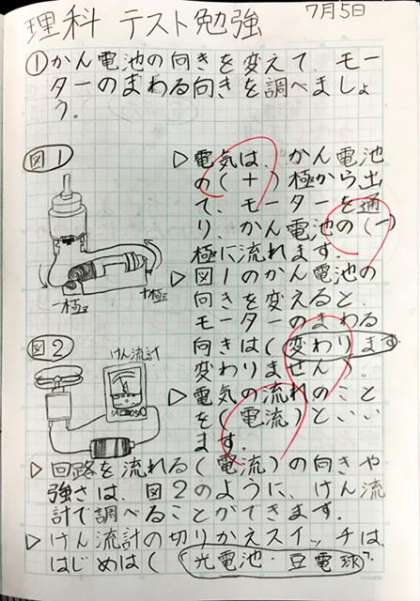 理科 テスト勉強 7月5日
①かん電池の向きを変えて、モー
ターのまわる向きを調べましょ
う。
図1
▷電気は、かん電池
の(+)極から出
て、モーターを通
り、かん電池の(-)
極に流れます。
-極
+極
▷図1のかん電池の
向きを変えると、
モーターのまわる
向きは(変わります
変わりません)。
図2
けん流計
▷電気の流れのこと
を(電流)といい
ます。
▷回路を流れる(電流)の向きや
強さは、図2のように、けん流
計で調べることができます。
▷けん流計の切りかえスイッチは、
はじめは(光電池・豆電球)